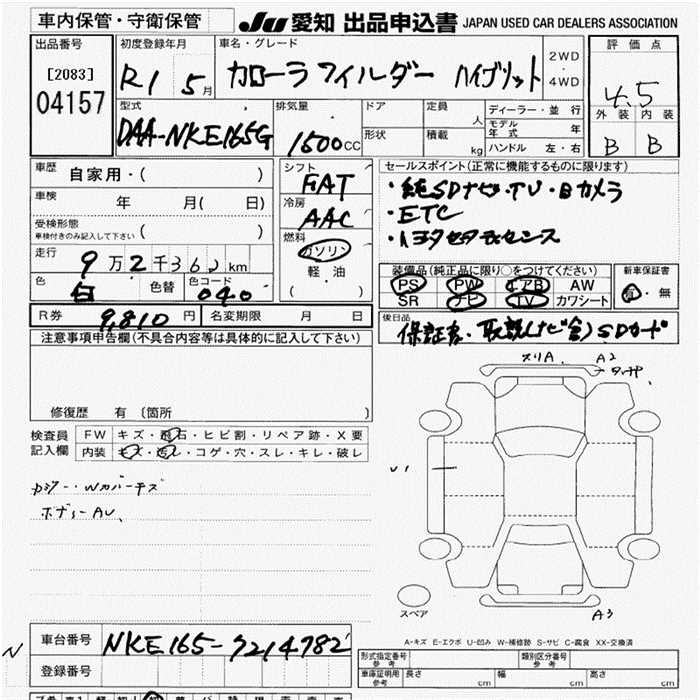 車内保管・守衛保管 JU 愛知 出品申込書 JAPAN USED CAR DEALERS ASSOCIATION
出品番号 初度登録年月 車名・グレード 2WD・4WD 評価点
[2083] R1 5月 カローラ フィルダー ハイブリット 4.5
04157
型式 排気量 ドア 定員 人 ディーラー・並行 外装 内装
DAA-NKE165G 1500cc 形状 積載 kg モデル年式 年 B B
ハンドル 左・右
車歴 自家用・( ) シフト FAT セールスポイント(正常に機能するものに限ります)
車検 年 月( 日) 冷房 AAC ・純SDナビ・TV・Bカメラ
受検形態 ( ) ・ETC
車検付きのみ記入して下さい 燃料 ガソリン ・トヨタセフティセンス
走行 9万2千362km 軽・油
色 白 色替 色コード 040 ( )
装備品(純正品に限り○をつけてください) 新車保証書
PS PW エアB AW 有・無
SR ナビ TV カワシート
R券 9,810円 名変期限 月 日
後日品 保証書・取説(ナビ含)SDカード
注意事項申告欄(不具合内容等は具体的に記入して下さい)
修復歴 有 〔箇所 〕
検査員記入欄 FW キズ・飛石・ヒビ割・リペア跡・X要
内装 キズ・汚レ・コゲ・穴・スレ・キレ・破レ
メリA. A2
U1
ボデーAU、
スペア A3
A-キズ E-エクボ U-凹み W-補修跡 S-サビ C-腐食 XX-交換済
N 車台番号 NKE165-7214782
登録番号
形式指定番号 参考 類別区分番号 参考
車庫証明用 参考 長さ cm 幅 cm 高さ cm